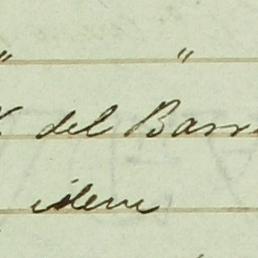 " "
del Barr
idem